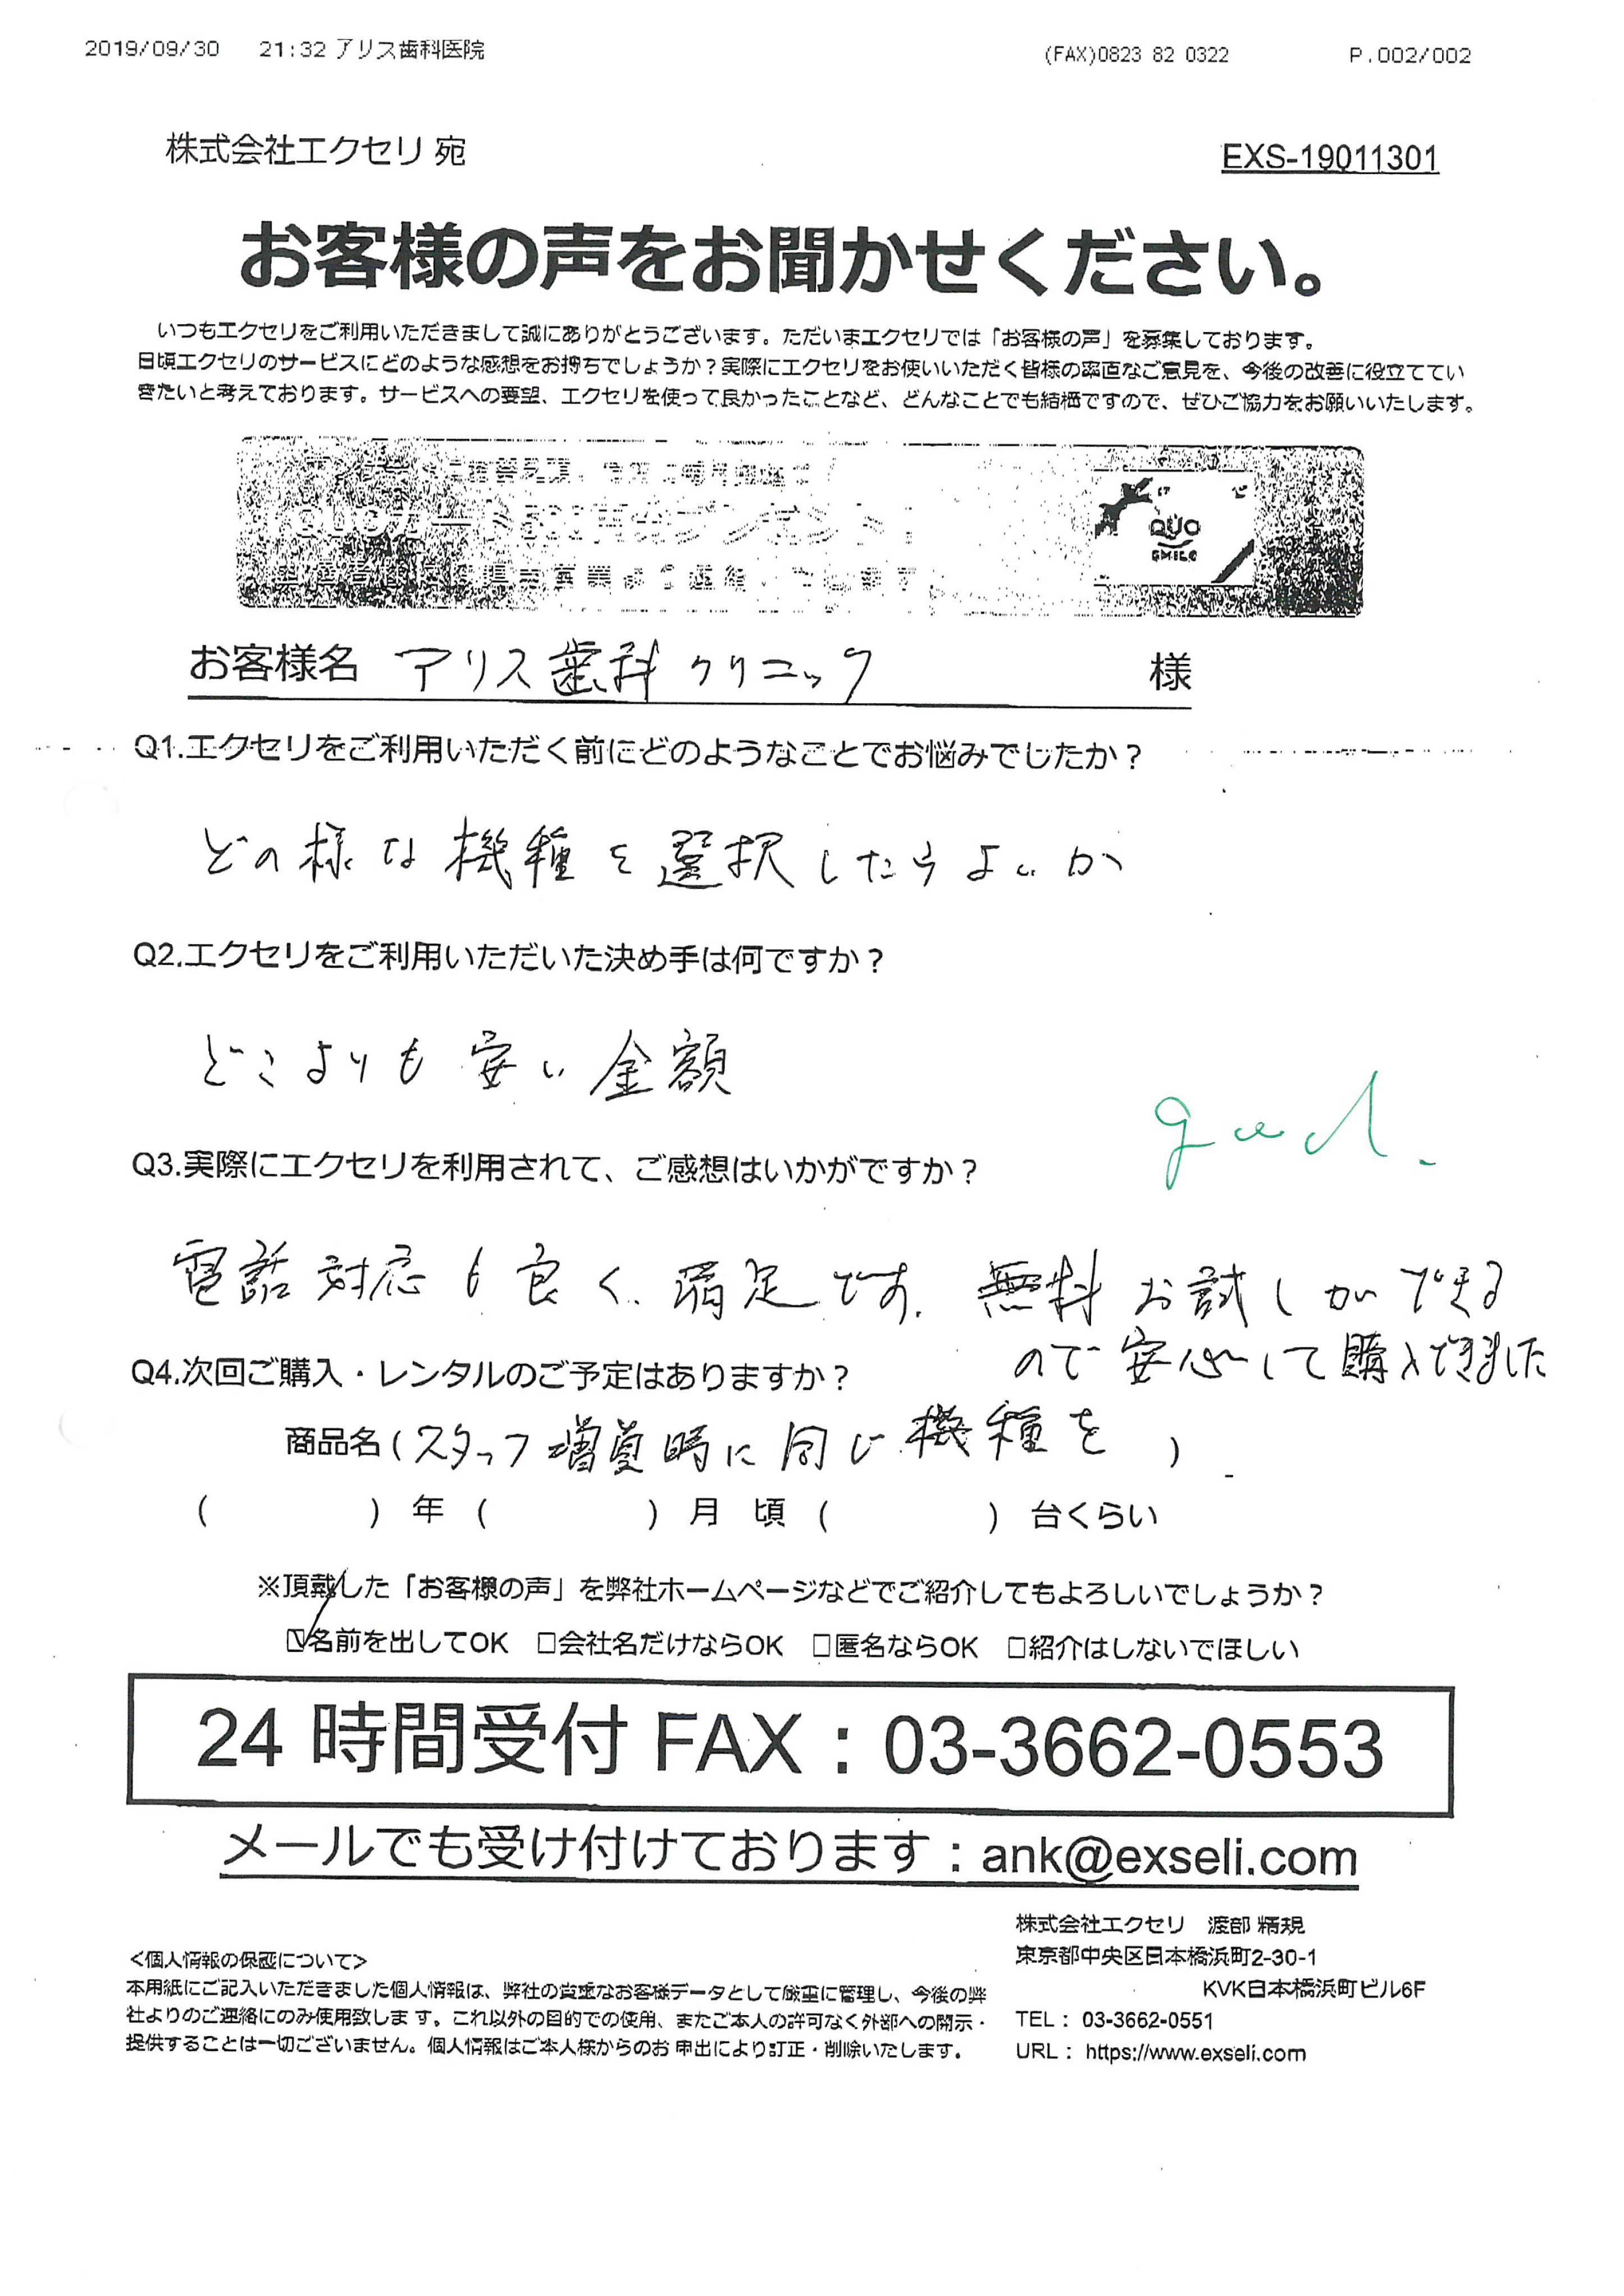 2019/09/30 21:32 アリス歯科医院 (FAX)0823 82 0322 P.002/002
株式会社エクセリ 宛 EXS-19011301
お客様の声をお聞かせください。
いつもエクセリをご利用いただきまして誠にありがとうございます。ただいまエクセリでは「お客様の声」を募集しております。
日頃エクセリのサービスにどのような感想をお持ちでしょうか？実際にエクセリをお使いいただく皆様の率直なご意見を、今後の改善に役立ててい
きたいと考えております。サービスへの要望、エクセリを使って良かったことなど、どんなことでも結構ですので、ぜひご協力をお願いいたします。
QUOカード
QUO
SMILE
お客様名 アリス歯科クリニック 様
Q1.エクセリをご利用いただく前にどのようなことでお悩みでしたか？
どの様な機種を選択したらよいか
Q2.エクセリをご利用いただいた決め手は何ですか？
どこよりも安い金額
good.
Q3.実際にエクセリを利用されて、ご感想はいかがですか？
電話対応も良く、満足です。無料お試しができる
ので安心して購入できました
Q4.次回ご購入・レンタルのご予定はありますか？
商品名(スタッフ増員時に同じ機種を)
( )年( )月頃( )台くらい
※頂戴した「お客様の声」を弊社ホームページなどでご紹介してもよろしいでしょうか？
☑名前を出してOK □会社名だけならOK □匿名ならOK □紹介はしないでほしい
24時間受付 FAX：03-3662-0553
メールでも受け付けております：ank@exseli.com
株式会社エクセリ 渡部 精規
東京都中央区日本橋浜町2-30-1
KVK日本橋浜町ビル6F
TEL： 03-3662-0551
URL： https://www.exseli.com
<個人情報の保護について>
本用紙にご記入いただきました個人情報は、弊社の貴重なお客様データとして厳重に管理し、今後の弊
社よりのご連絡にのみ使用致します。これ以外の目的での使用、またご本人の許可なく外部への開示・
提供することは一切ございません。個人情報はご本人様からのお申出により訂正・削除いたします。